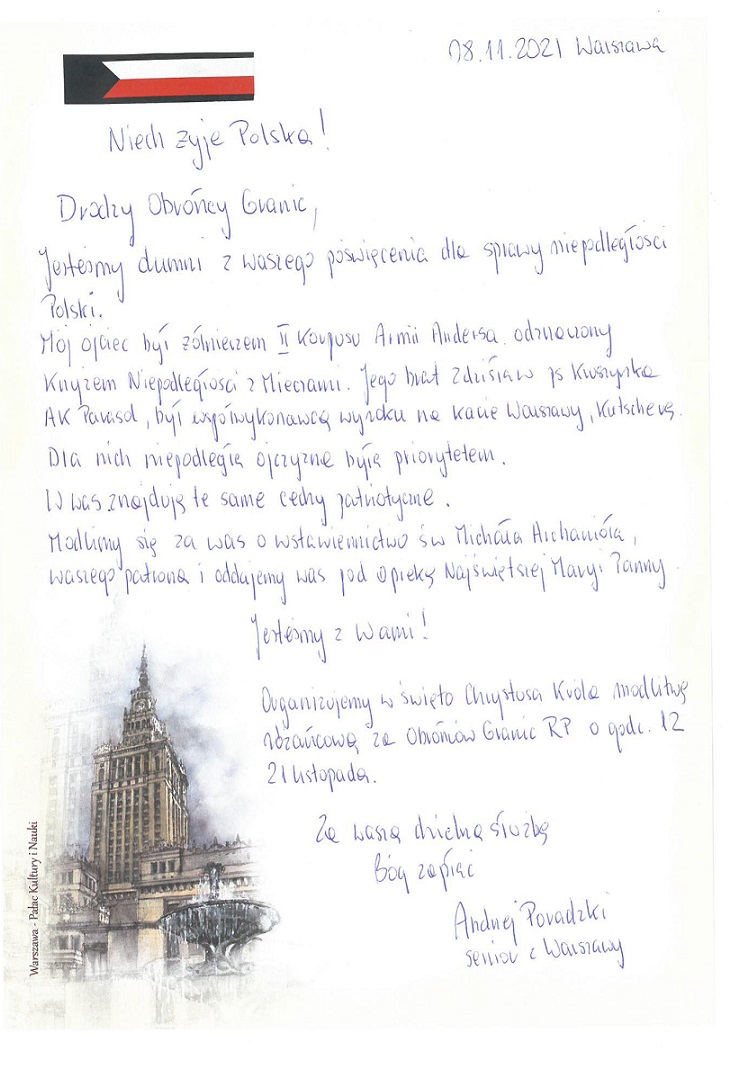 18.11.2021 Warszawa
Niech żyje Polska!
Drodzy Obrońcy Granic,
Jesteśmy dumni z waszego poświęcenia dla sprawy niepodległości
Polski.
Mój ojciec był żółnierzem II Korpusu Armii Andersa odznaczony
Krzyżem Niepodległości z Mieczami. Jego brat Zdzisław ps Kruszynka
AK Parasol, był współwykonawcą wyroku na kacie Warszawy, Kutscherą.
Dla nich niepodległa ojczyzna była priorytetem.
W was znajduję te same cechy patriotyczne.
Modlimy się za was o wstawiennictwo św Michała Archanioła,
waszego patrona i oddajemy was pod opiekę Najświętszej Maryi Panny.
Jesteśmy z Wami!
Organizujemy w święto Chrystusa Króla modlitwę
różańcową za Obrońców Granic RP o godz. 12
21 listopada.
Za waszą dzielną służbę
Bóg zapłać
Andrzej Poradzki
senior z Warszawy
Warszawa - Pałac Kultury i Nauki